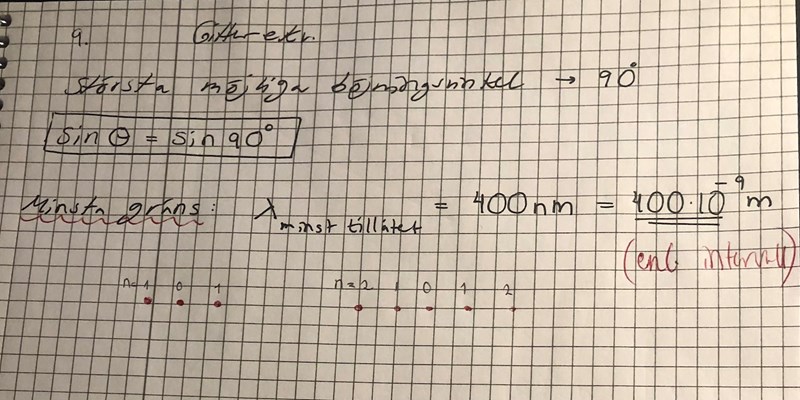 9. Gitter-extr.
Största möjliga böjningsvinkel → 90°
sin θ = sin 90°
Minsta gräns: λ minst tillåtet = 400 nm = 400·10⁻⁹ m
(enl intervall)
n=1 0 1 n=2 1 0 1 2